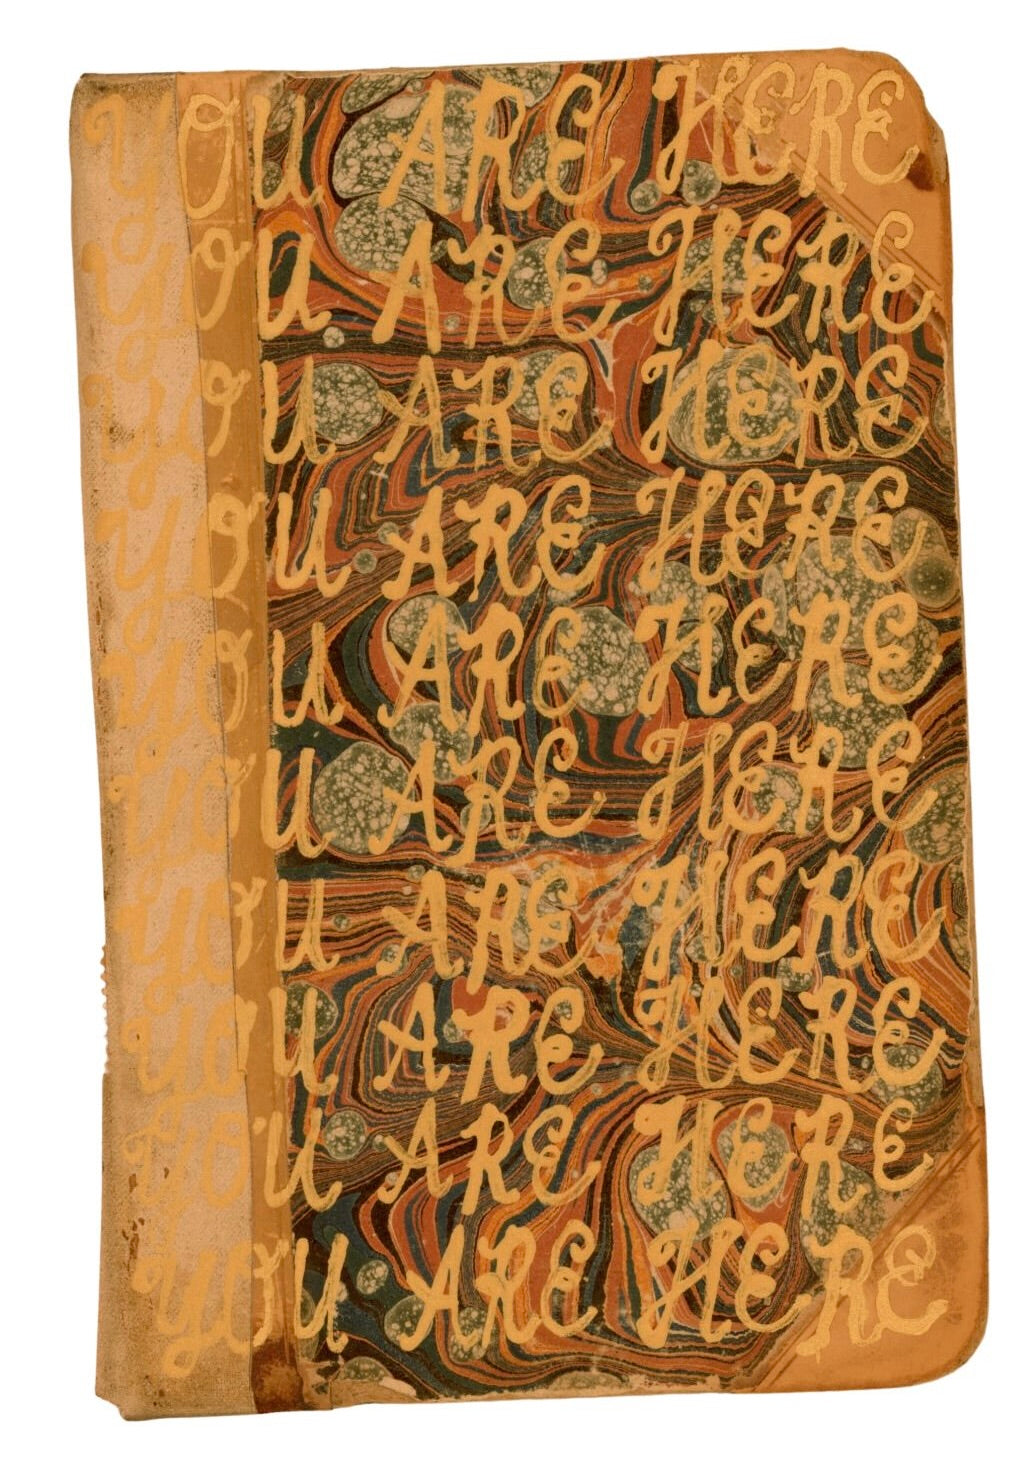 YOU ARE HERE
YOU ARE HERE
YOU ARE HERE
YOU ARE HERE
YOU ARE HERE
YOU ARE HERE
YOU ARE HERE
YOU ARE HERE
YOU ARE HERE
YOU ARE HERE